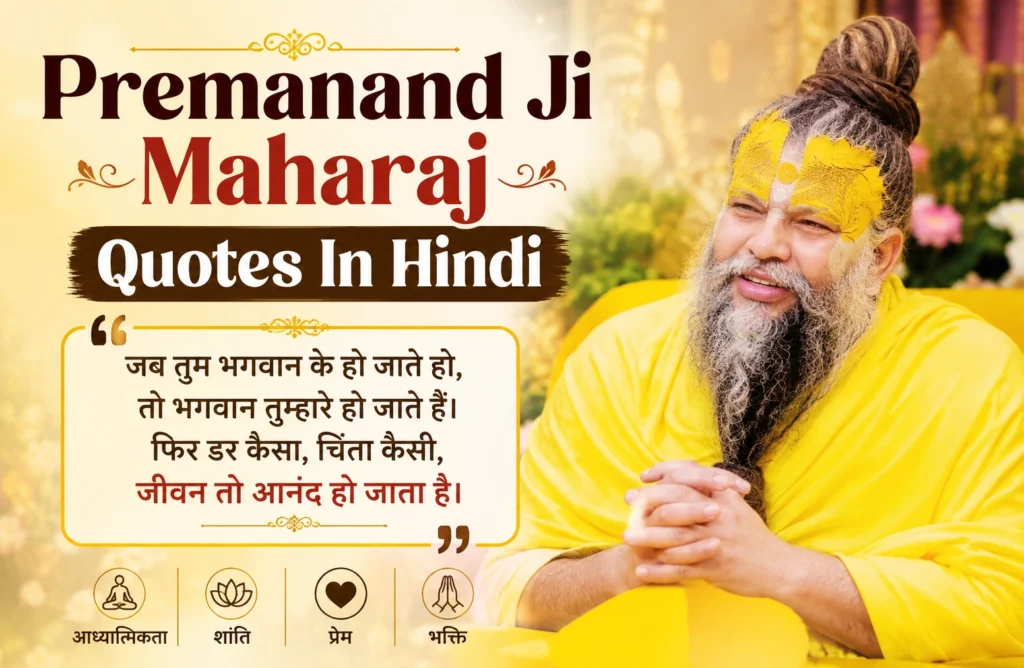 Premanand Ji
Maharaj
Quotes In Hindi
“
जब तुम भगवान के हो जाते हो,
तो भगवान तुम्हारे हो जाते हैं।
फिर डर कैसा, चिंता कैसी,
जीवन तो आनंद हो जाता है।
”
आध्यात्मिकता शांति प्रेम भक्ति